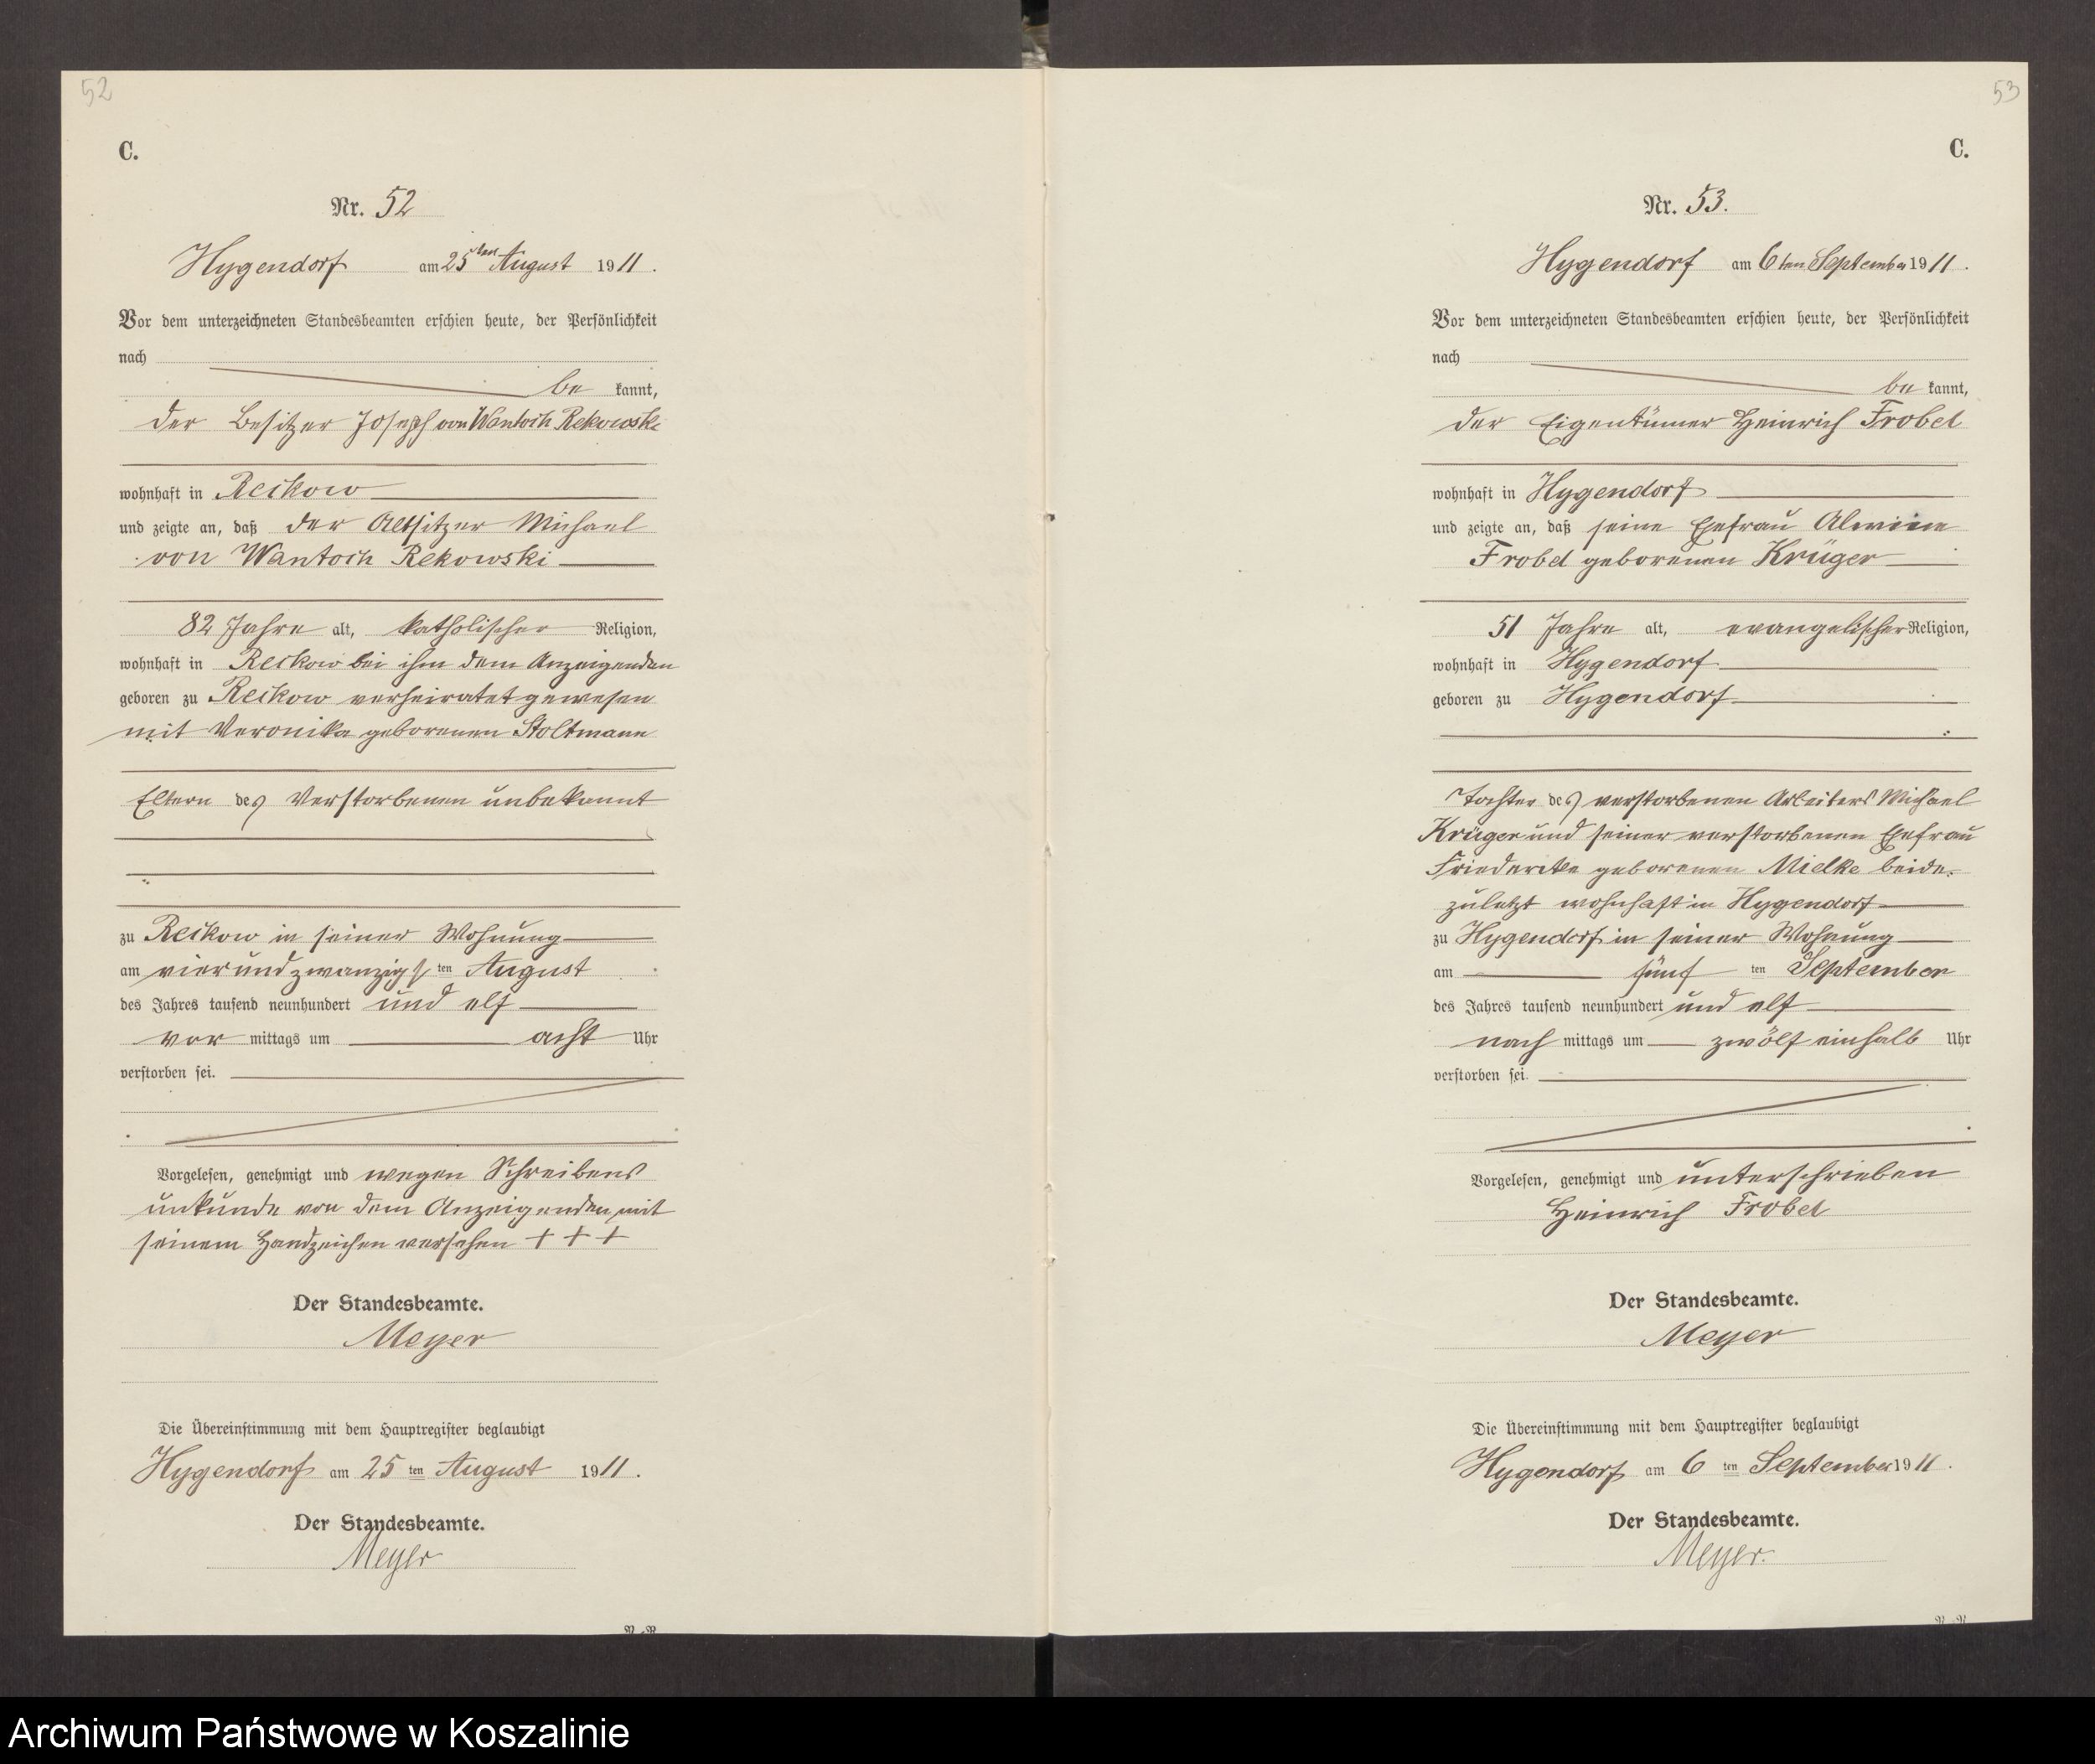 52
C.
Nr. 52
Hygendorf am 25ten August 1911.
Vor dem unterzeichneten Standesbeamten erschien heute, der Persönlichkeit
nach
be kannt,
der Besitzer Joseph von Wantoch Rekowski
wohnhaft in Reckow
und zeigte an, daß der Altsitzer Michael
von Wantoch Rekowski
82 Jahre alt, katholischer Religion,
wohnhaft in Reckow bei ihm dem Anzeigenden
geboren zu Reckow verheiratet gewesen
mit Veronika geborenen Stoltmann
Eltern des Verstorbenen unbekannt
zu Reckow in seiner Wohnung
am vierundzwanzigsten August
des Jahres tausend neunhundert und elf
vor mittags um acht Uhr
verstorben sei.
Vorgelesen, genehmigt und wegen Schreibens
unkunde von dem Anzeigenden mit
seinem Handzeichen versehen + + +
Der Standesbeamte.
Meyer
Die Übereinstimmung mit dem Hauptregister beglaubigt
Hygendorf am 25 ten August 1911.
Der Standesbeamte.
Meyer
53
C.
Nr. 53.
Hygendorf am 6ten September 1911.
Vor dem unterzeichneten Standesbeamten erschien heute, der Persönlichkeit
nach
be kannt,
der Eigentümer Heinrich Frobel
wohnhaft in Hygendorf
und zeigte an, daß seine Ehefrau Alwine
Frobel geborenen Krüger
51 Jahre alt, evangelischer Religion,
wohnhaft in Hygendorf
geboren zu Hygendorf
Tochter des verstorbenen Arbeiters Michael
Krüger und seiner verstorbenen Ehefrau
Friedericke geborenen Mielke beide
zuletzt wohnhaft in Hygendorf
zu Hygendorf in seiner Wohnung
am fünf ten September
des Jahres tausend neunhundert und elf
nach mittags um zwölf einhalb Uhr
verstorben sei.
Vorgelesen, genehmigt und unterschrieben
Heinrich Frobel
Der Standesbeamte.
Meyer
Die Übereinstimmung mit dem Hauptregister beglaubigt
Hygendorf am 6 ten September 1911.
Der Standesbeamte.
Meyer.
Archiwum Państwowe w Koszalinie